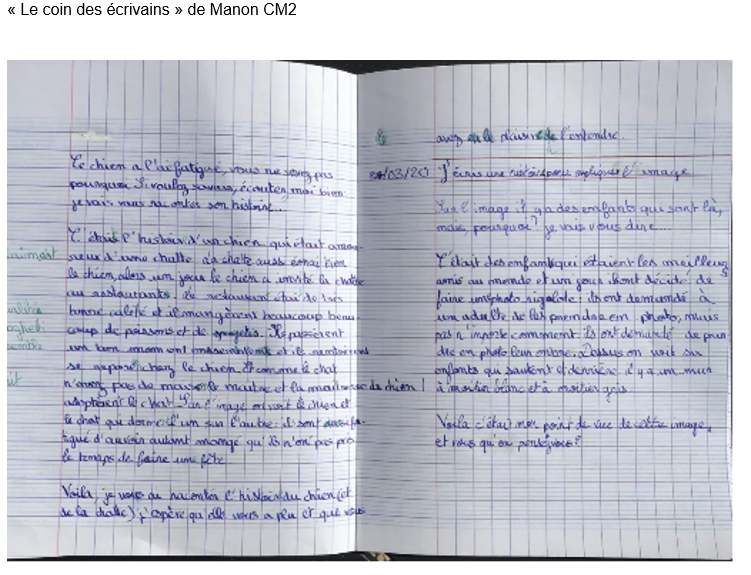 « Le coin des écrivains » de Manon CM2
Le chien a l'air fatigué, vous ne savez pas
pourquoi. Si voulez savoir, écoutez moi bien
je vais vous raconter son histoire...
C'était l'histoire d'un chien qui était amou-
reux d'une chatte. La chatte aussi bien
le chien, alors un jour le chien a invité la chatte
au restaurants. Le restaurant était de très
bonne qualité et il mangèrent beaucoup beau-
coup de poissons et de spagetis. Ils passèrent
un bon moment ensemble et ils
se reposé chez le chien. Et comme le chat
n'avez pas de maison le maître et la maîtresse du chien !
adoptèrent le chat. Sur l'image on voit le chien et
le chat qui dorme l'un sur l'autre: il sont fa-
tigué d'avoir autant mangé qu'ils n'on pas pris
le temps de faire une fête.
Voila, je vous ai raconter l'histoire du chien (et
de la chatte) j'espère qu'elle vous a plu et que vous
aimait
invitée
spaghetti
avez eu le plaisir de l'entendre.
/03/20 J'écris une histoire pour expliquer l'image
Sur l'image il y a des enfants qui sont là,
mais, pourquoi? je vais vous dire...
C'était des enfants qui étaient les meilleurs
amis au monde et un jour ils ont décidé de
faire une photo rigolote: ils ont demandé à
un adulte de les prendre en photo, mais
pas n'importe comment. Ils ont demandé de pren
dre en photo leur ombre. Dessus on voit six
enfants qui sautent et derrière il y a un mur
à mortier blanc et à mortier gris
Voila c'était mon point de vue de cette image,
et vous qu'en pensez vous?